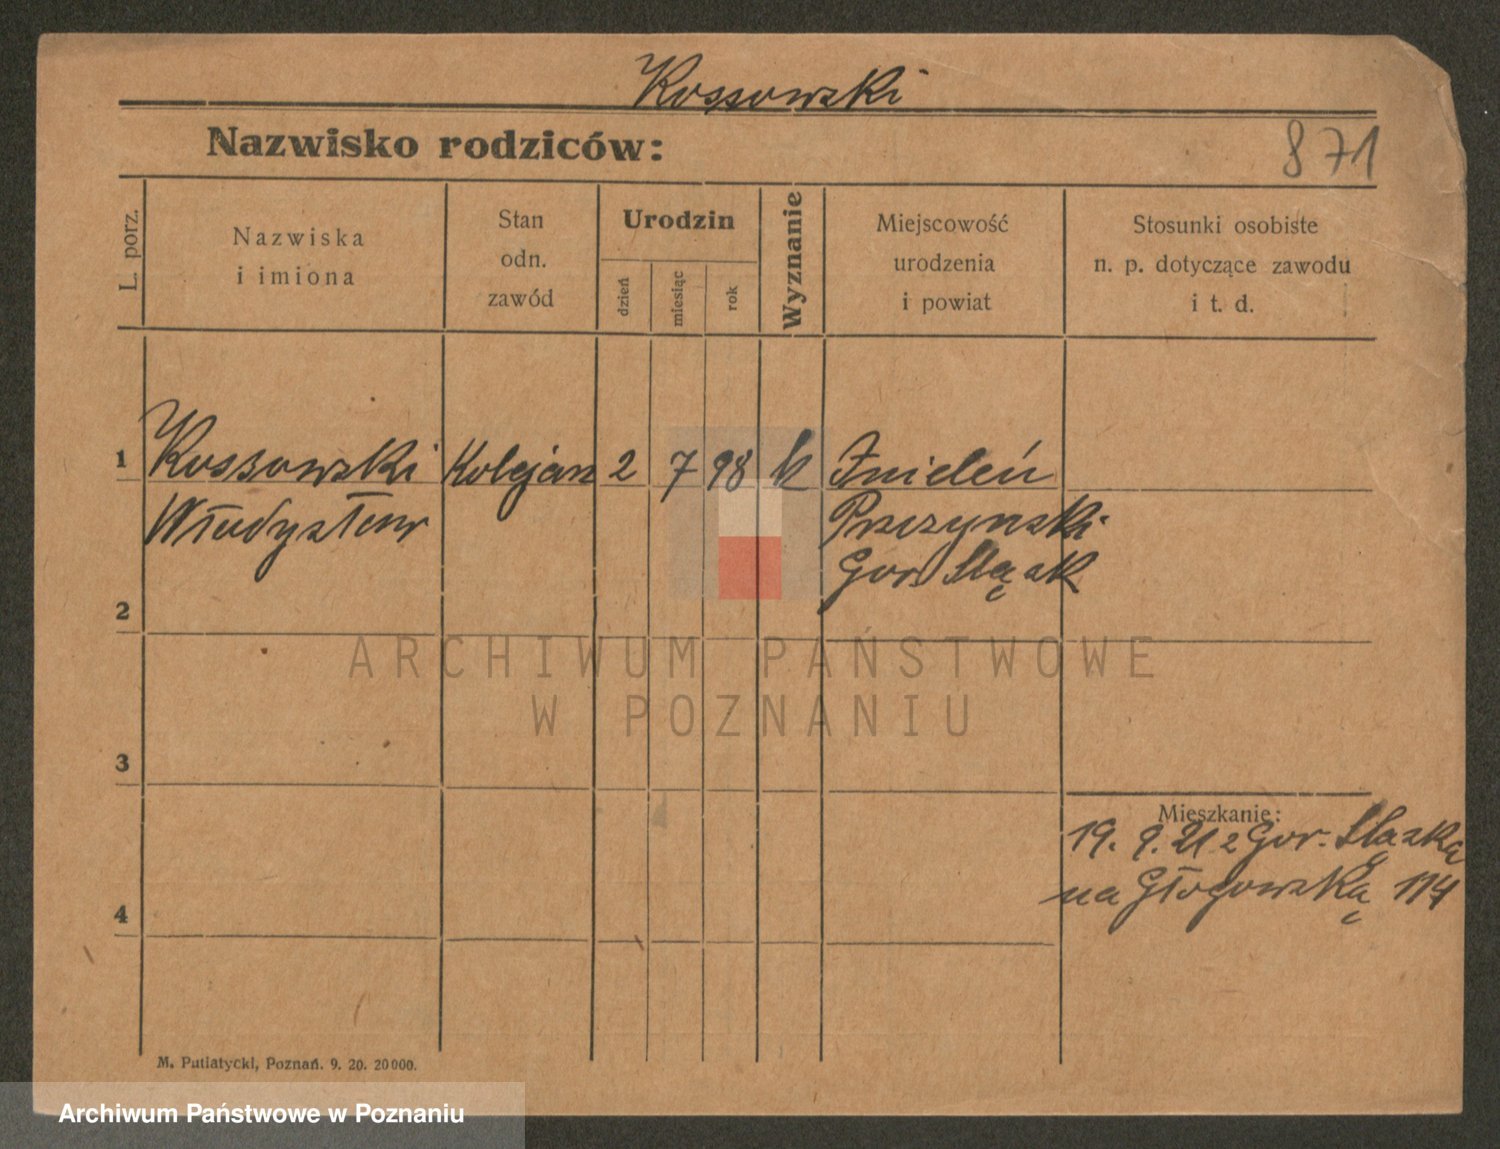 Kossowski
Nazwisko rodziców:
871
L. porz.
Nazwiska
i imiona
Stan
odn.
zawód
Urodzin
dzień
miesiąc
rok
Wyznanie
Miejscowość
urodzenia
i powiat
Stosunki osobiste
n. p. dotyczące zawodu
i t. d.
1
Kossowski Kolejarz 2 7 98 k
Władysław
Pszczynski
Gor. Śląsk
2
ARCHIWUM PAŃSTWOWE
W POZNANIU
3
Mieszkanie:
19. 9. 21 z Gor. Śląska
na Głogowską 114
4
M. Putiatycki, Poznań. 9. 20. 20 000.
Archiwum Państwowe w Poznaniu